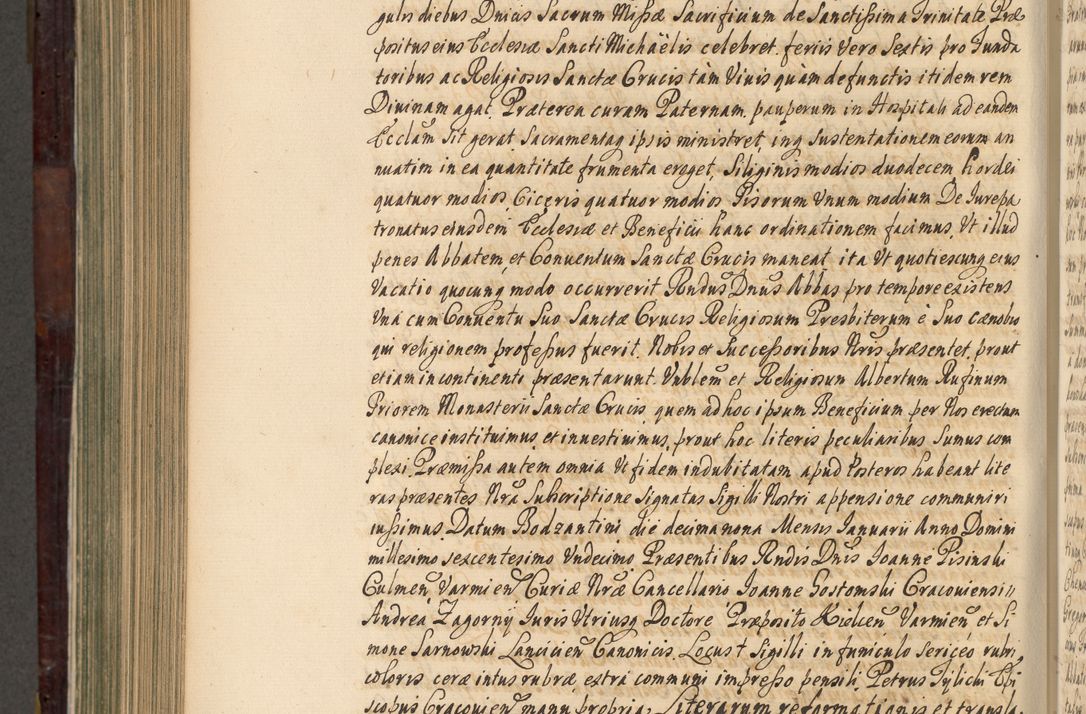 gulis diebus Dnicis Sacrum Missæ Sacrificium de Sanctissima Trinitate Præ
positus eius Ecclesiæ Sancti Michaëlis celebret. feriis Vero Sextis pro Funda
toribus ac Religiosis Sanctæ Crucis tàm Viuis quàm defunctis itidem rem
Diuinam agat. Præterea curam Paternam pauperum in Hospitali ad eandem
Ecclam sit gerat Sacramentaq ipsis ministret, inq sustentationem eorum an
nuatim in ea quantitate frumenta eroget, Siliginis modios duodecem hordei
quatuor modios Ciceris quatuor modios Pisorum Vnum modium De Iure pa
tronatus eiusdem Ecclesiæ et Beneficii hanc ordinationem facimus, Vt illud
penes Abbatem, et Conuentum Sanctæ Crucis maneat ita Vt quotiescunq eius
Vacatio quocunq modo occurrerit Rndus Dnus Abbas pro tempore existens
Vna cum Conuentu Suo Sanctæ Crucis Religiosum Presbiterum è Suo cænobio
qui religionem professus fuerit. Nobis et Successoribus Nris præsentet. prout
etiam in continenti præsentarunt. Vnblem et Religiosum Albertum Rufinum
Priorem Monasterii Sanctæ Crucis quem ad hoc ipsum Beneficium per Nos erectum
canonice instituimus, et inuestiuimus, prout hoc literis peculiaribus Sumus com
plexi. Præmissa autem omnia Vt fidem indubitatam apud Posteros habeant lite
ras præsentes Nra Subscriptione Signatas Sigilli Nostri appensione communiri
iussimus. Datum Bodzantini die decimanona Mensis Ianuarii Anno Domini
millesimo sexcentesimo Vndecimo Præsentibus Rndis Dnis Ioanne Pisinski
Culmen, Varmien Curiæ Nræ Cancellario Ioanne Gostomski Cracouiensi
Andrea Zagorny Iuris Vtriusq Doctore Præposito Kielcen Varmien et Si
mone Sarnowski Lancicien Canonicis. Locus + Sigilli in funiculo sericeo rubri
coloris ceræ intus rubræ, extra communi impresso pensili. Petrus Tylicki Epi
scopus Cracouien manu propria, Literarum reformationis et transla-